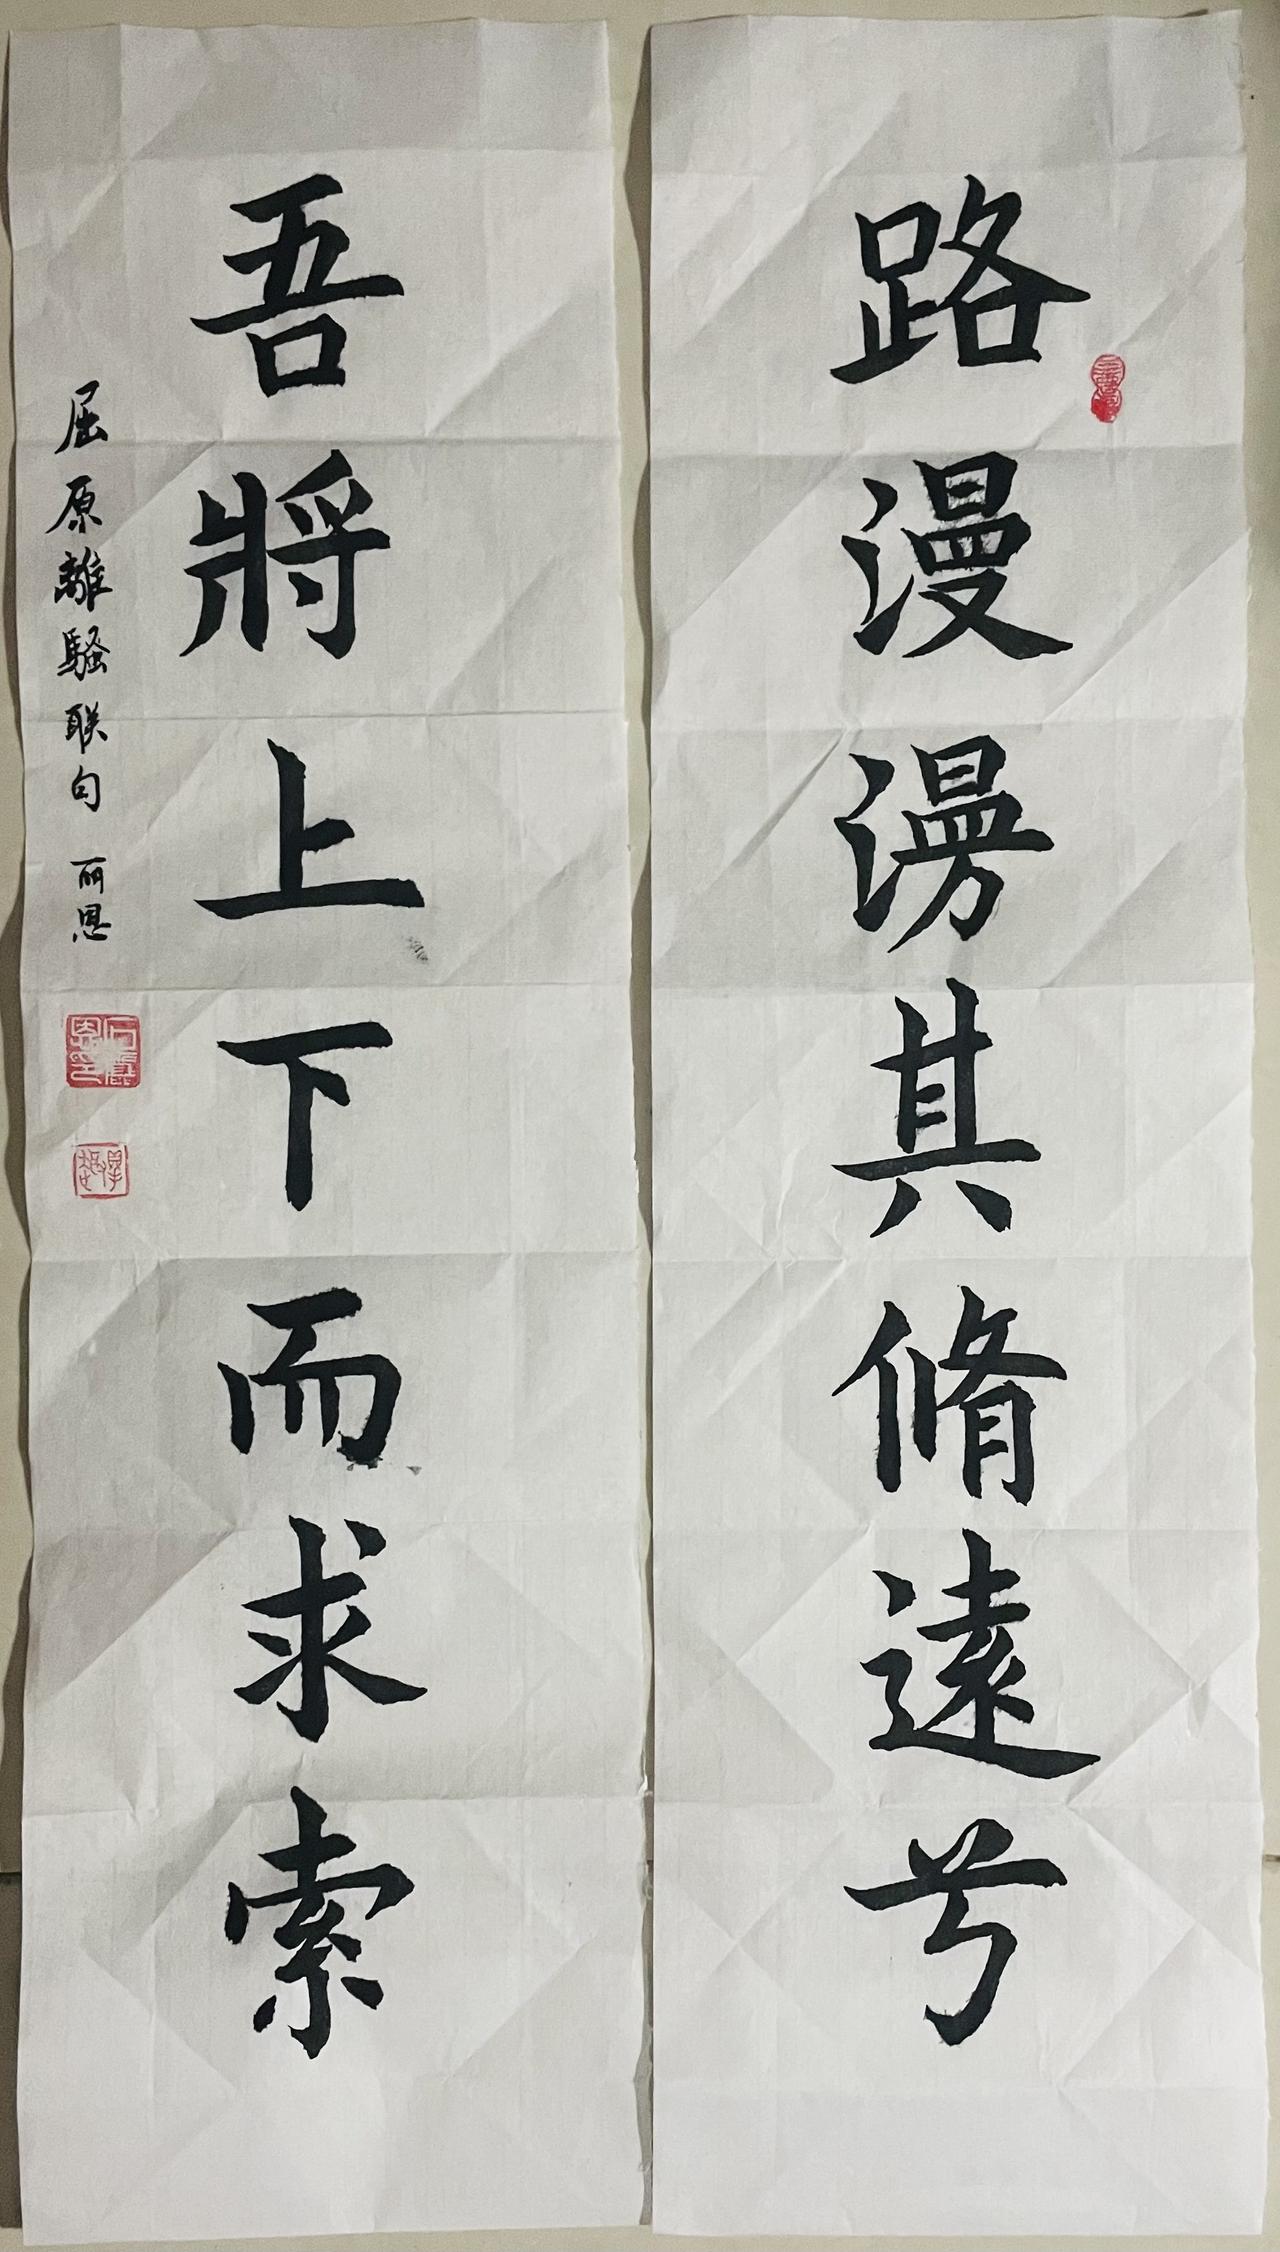 路漫漫其脩遠兮
吾將上下而求索
屈原離騷联句 丽恩